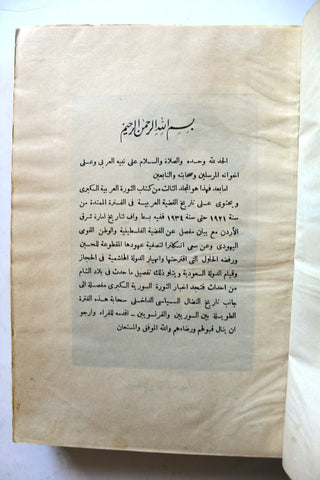 بسم الله الرحمن الرحيم
الحمد لله وحده والصلاة والسلام على نبيه العربي وعلى
اخوانه المرسلين وصحابته والتابعين
اما بعد فهذا هو المجلد الثالث من كتاب الثورة العربية الكبرى
ويحتوي على تاريخ القضية العربية في الفترة الممتدة من
سنة ١٩٢١ حتى سنة ١٩٣٤ ففيه بسط واف لتاريخ امارة شرق
الأردن مع بيان مفصل عن القضية الفلسطينية والوطن القومى
اليهودى وعن سعى انكلترا لتصفية عهودها المقطوعة للحسين
ورفضه الحلول التى اقترحتها وانهيار الدولة الهاشمية في الحجاز
وقيام الدولة السعودية ويتلو ذلك تفصيل ما حدث في بلاد الشام
من احداث فتجد اخبار الثورة السورية الكبرى مفصلة الى
جانب تاريخ النضال السياسى الداخلى سحابة هذه الفترة
الطويلة بين السوريين والفرنسويين ـ اقدمه للقراء وارجو
ان ينال قبولهم ورضاءهم والله الموفق والمستعان